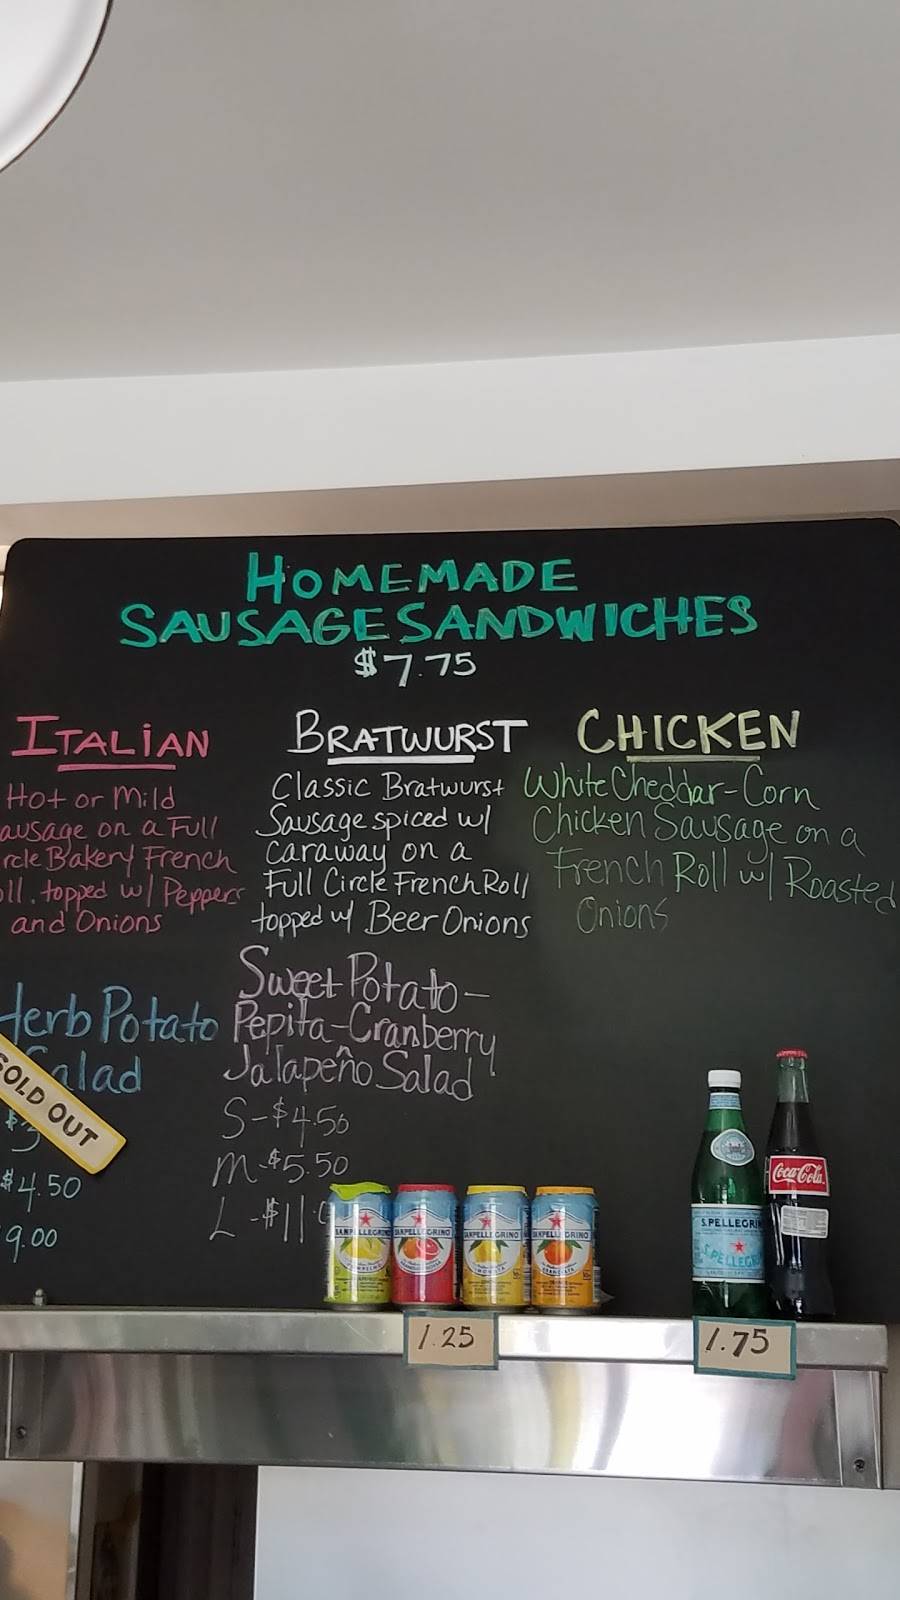 HOMEMADE
SAUSAGE SANDWICHES
$7.75
ITALIAN
Hot or Mild
ausage on a Full
rcle Bakery French
oll, topped w/ Peppers
and Onions
BRATWURST
Classic Bratwurst
Sausage spiced w/
caraway on a
Full Circle French Roll
topped w/ Beer Onions
CHICKEN
White Cheddar-Corn
Chicken Sausage on a
French Roll w/ Roasted
Onions
Herb Potato
Salad
SOLD OUT
$3
$4.50
9.00
Sweet Potato-
Pepita-Cranberry
Jalapeño Salad
S-$4.50
M-$5.50
L-$11.0
SANPELLEGRINO
SANPELLEGRINO
SANPELLEGRINO
SANPELLEGRINO
S.PELLEGRINO
S.PELLEGRINO
Coca-Cola
1.25
1.75